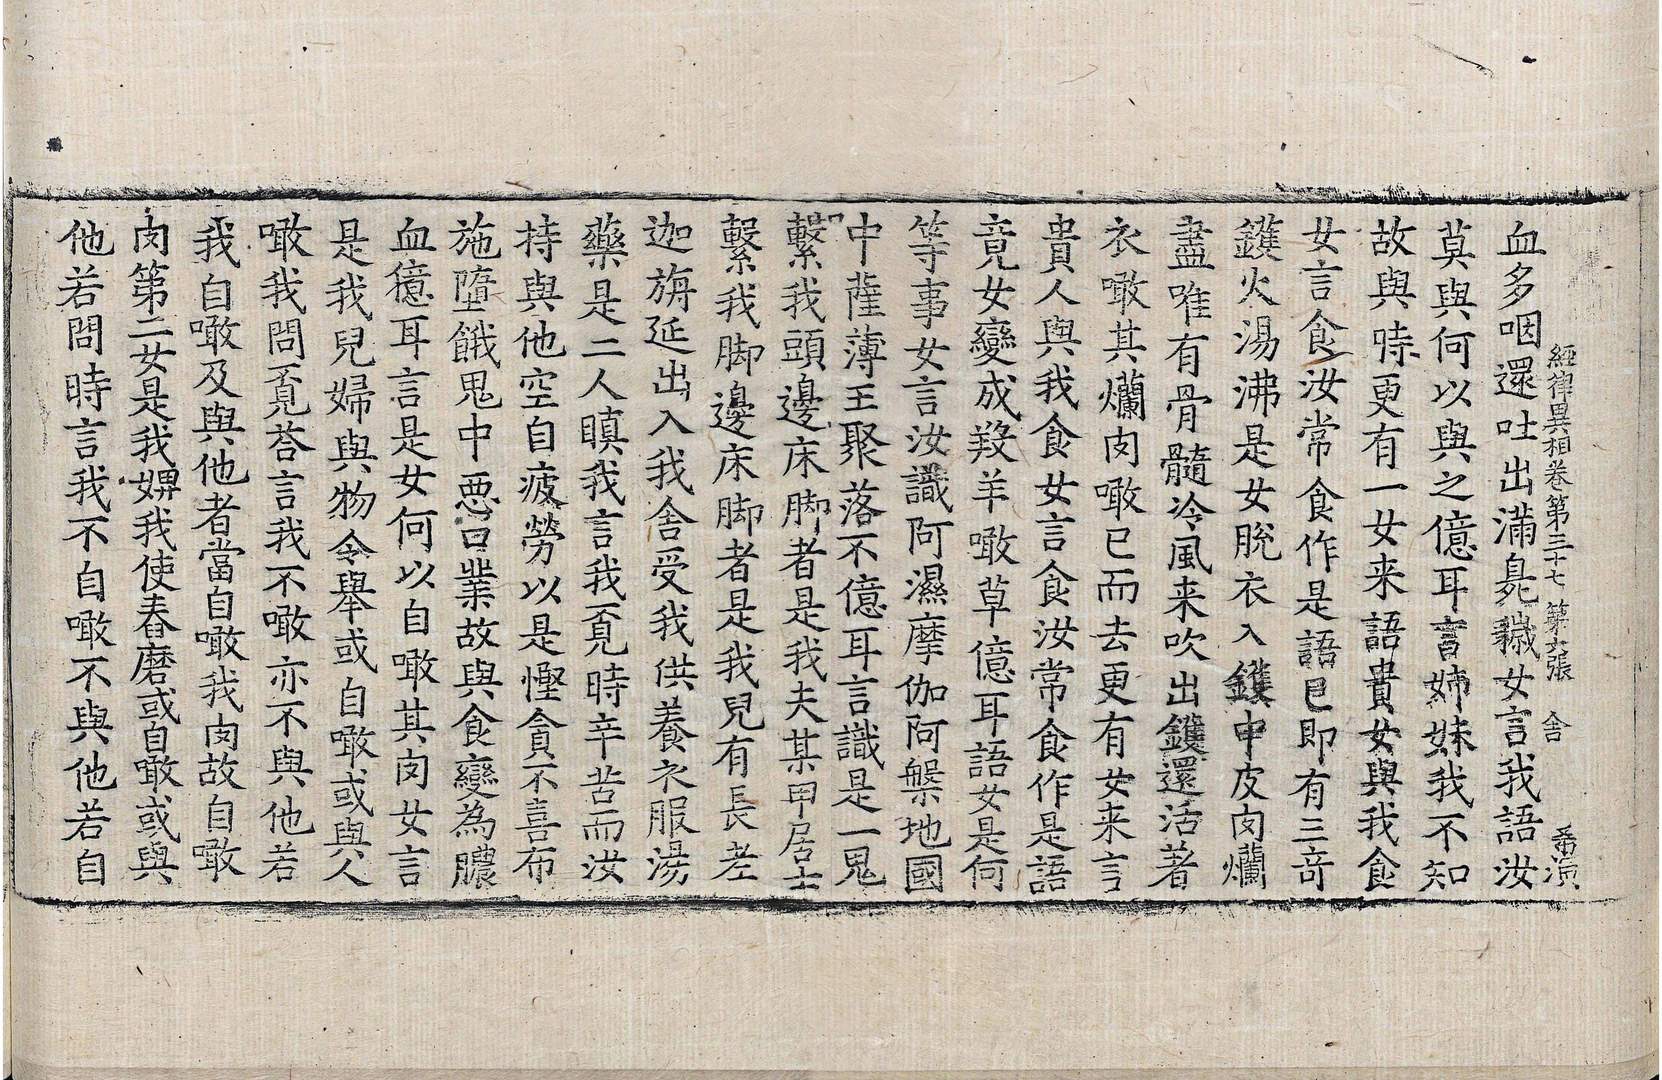 經律異相卷第三十七 第六張 舍 希演
血多咽還吐出滿臭穢女言我語汝
莫與何以與之億耳言姉妹我不知
故與時更有一女来語貴女與我食
女言食汝常食作是語已即有三竒
鑊火湯沸是女脫衣入鑊中皮肉爛
盡唯有骨髓冷風来吹出鑊還活著
衣噉其爛肉噉已而去更有女来言
貴人與我食女言食汝常食作是語
竟女變成羖羊噉草億耳語女是何
等事女言汝識阿濕摩伽阿槃地國
中薩薄王聚落不億耳言識是一鬼
繫我頭邊床脚者是我夫某甲居士
繫我脚邊床脚者是我兒有長老
迦旃延出入我舍受我供養衣服湯
藥是二人瞋我言我覔時辛苦而汝
持與他空自疲勞以是慳貪不喜布
施墮餓鬼中惡口業故與食變為膿
血億耳言是女何以自噉其肉女言
是我兒婦與物令舉或自噉或與人
噉我問覔荅言我不噉亦不與他若
我自噉及與他者當自噉我肉故自噉
肉第二女是我婢我使舂磨或自噉或與
他若問時言我不自噉不與他若自